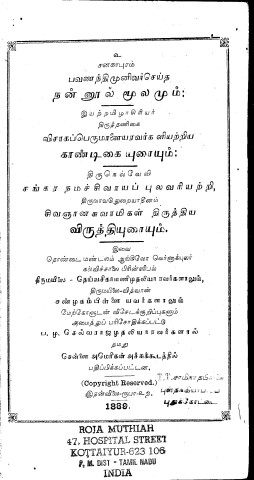 உ
சனகாபுரம்
பவணந்திமுனிவர்செய்த
நன்னூல் மூலமும்:
இயற்றமிழாசிரியர்
திருத்தணிகை
விசாகப்பெருமாளையரவர்க ளியற்றிய
காண்டிகை யுரையும்:
திருநெல்வேலி
சங்கர நமச்சிவாயப் புலவரியற்றி,
திருவாவடுதுறையாதீனம்
சிவஞானசுவாமிகள் திருத்திய
விருத்தியுரையும்.
இவை
தொண்டை மண்டலம்
கல்விச்சாலை பிரின்ஸிபல்
திருமயிலை
திருமயிலை-வித்வான்
சண்முகம்பிள்ளை யவர்களாலும்
மேற்கோளுடன் விசேடக்குறிப்புகளும்
அமைத்துப் பரிசோதிக்கப்பட்டு
தமது
சென்னை அமெரிகன் அச்சுக்கூடத்தில்
பதிப்பிக்கப்பட்டன.
(Copyright Reserved.)
இதன்விலை-ரூபா-உ.
1889.
புதுக்கோட்டை
ROJA MUTHIAH
47, HOSPITAL STREET
KOTTAIYUR-623 106
P, M. DIST - TAMIL NADU
INDIA